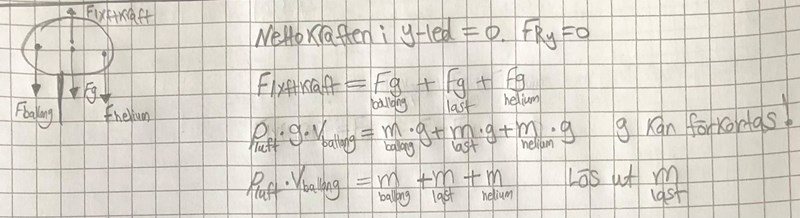 Flyftkraft
Fg
Fballong
Fhelium
Nettokraften i y-led = 0. FRy = 0
Flyftkraft = Fg ballong + Fg last + Fg helium
ρluft · g · Vballong = m ballong · g + m last · g + m helium · g g kan förkortas!
ρluft · Vballong = m ballong + m last + m helium Lös ut m last